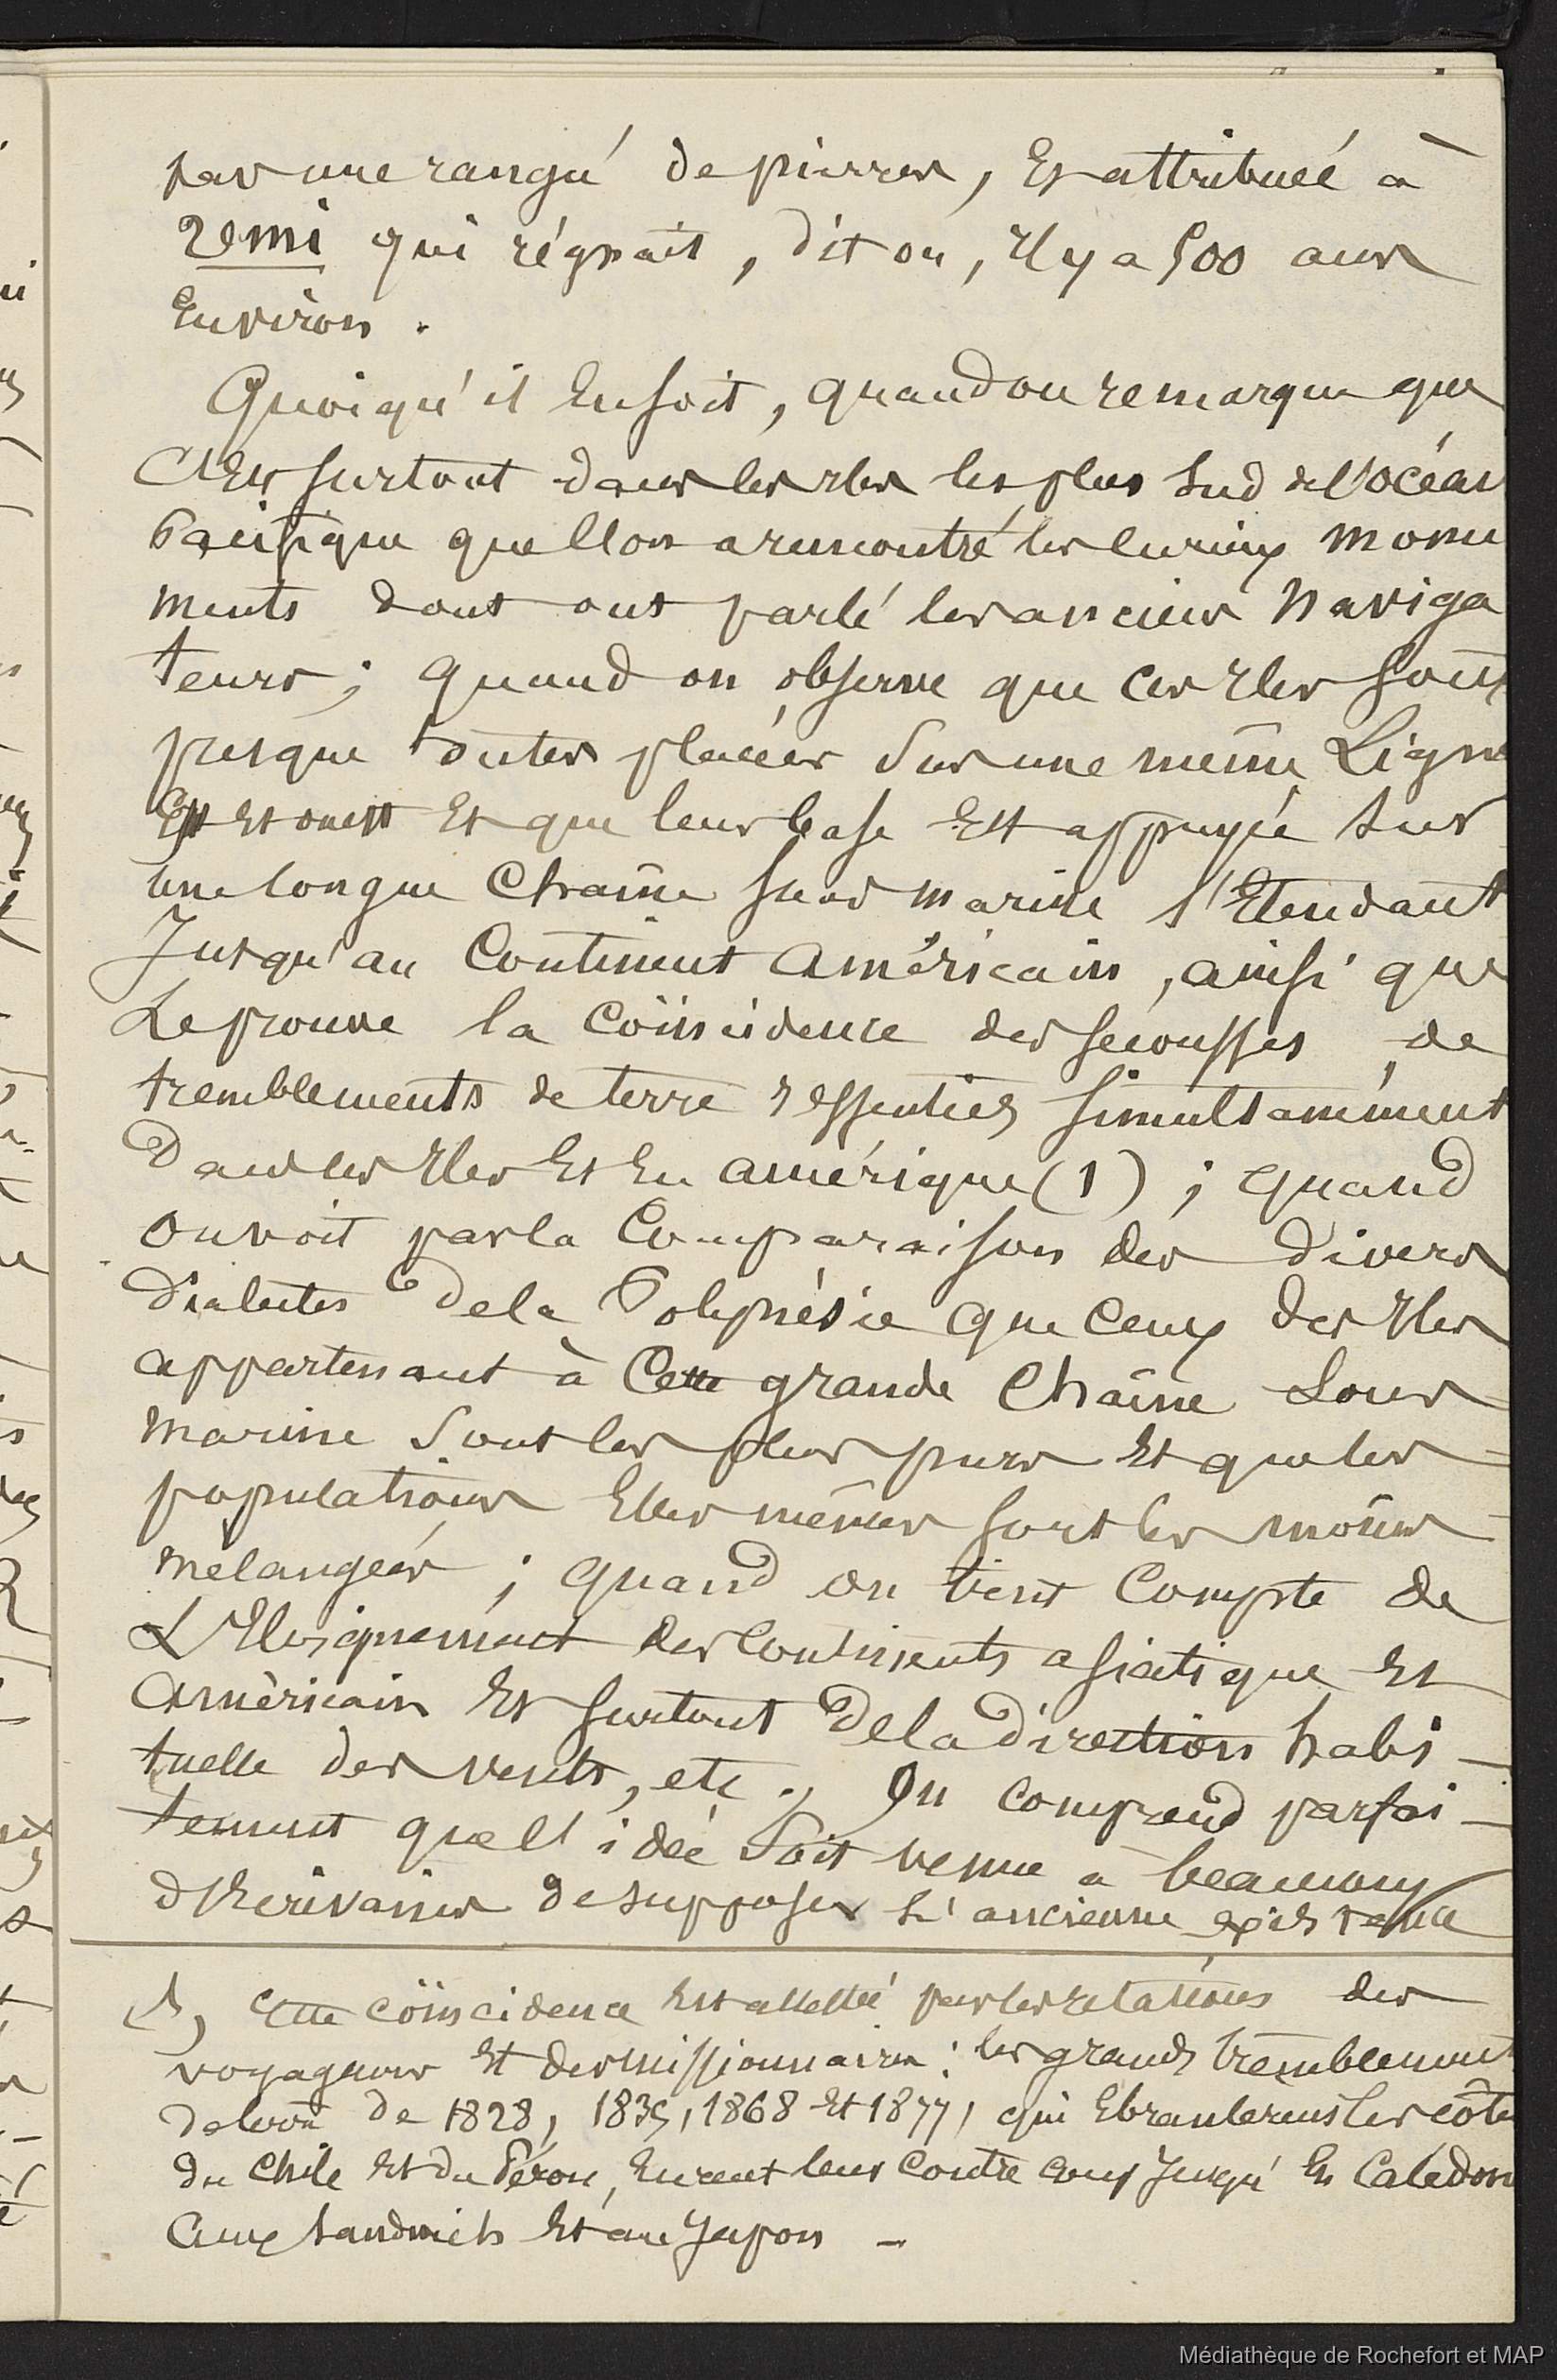 par une rangé de pierres, Et attribuée à
Remi qui régnait, dit on, Il y a 500 ans
Environ.
Quoiqu'il En soit, quand on remarque que
C'Est surtout dans les Iles les plus Sud de l'océan
Pacifique que l'on a rencontré les curieux monu
ments dont ont parlé les anciens Naviga
teurs; quand on observe que ces Iles sont
presque toutes placées Sur une même Ligne
Est Et ouest Et que leur base Est appuyée sur
une longue Chaîne sous marine s'Etendant
Jusqu'au Continent Américain, ainsi que
Le prouve la coïncidence des secousses de
tremblements de terre ressenties simultanément
Dans les Iles Et En amérique (1); quand
on voit par la Comparaison des divers
dialectes De la Polynésie que ceux des Iles
appartenant à Cette grande Chaîne Sous
marine Sont les plus purs Et que les
populations Elles mêmes sont les moins
melangées; quand on tient Compte de
L'Eloignement des Continents asiatique Et
Américain Et surtout De la Direction habi-
tuelle des vents, etc., On comprend parfai-
tement que l'idée Soit venue à beaucoup
d'Ecrivains de supposer L'ancienne existence
(1) Cette coïncidence Est attestée par les relations des
voyageurs Et des missionnaires: les grands tremblement
de terre de 1828, 1835, 1868 Et 1877, qui Ebranlerent les côtes
du Chile Et du Pérou, Eurent leur contre coup Jusqu'En Calédoni
Aux Sandwich Et au Japon -
Médiathèque de Rochefort et MAP